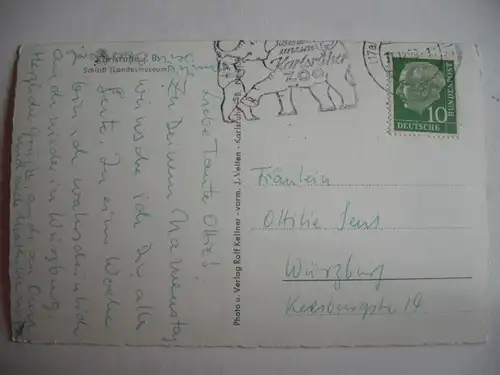 Karlsruhe i. Ba
Schloß (Landesmuseum)
Liebe Tante Ottie!
Zu Deinem Namenstag
wünsche ich Dir alles
Gute. In einer Woche
bin ich wahrscheinlich
auch wieder in Würzburg
Herzliche Grüße, auch an
Photo u. Verlag Rolf Kellner - vorm. J. Velten - Karlsruhe
unseren
Karlsruher
ZOO
(17a)
10
DEUTSCHE
BUNDESPOST
Fräulein
Ottilie Sens
Würzburg